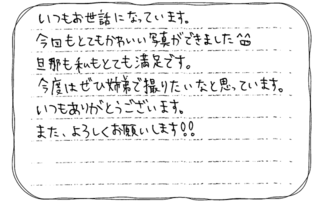 いつもお世話になっています。
今回もとてもかわいい写真ができました^^
旦那も私もとても満足です。
今度はぜひ姉弟で撮りたいなと思っています。
いつもありがとうございます。
また、よろしくお願いします!!